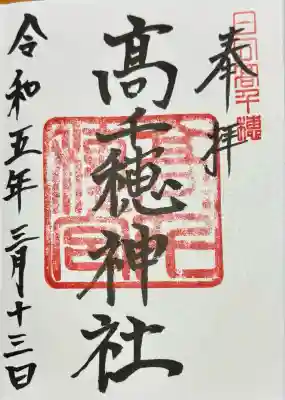 日向高千穂
奉拝
髙千穂神社
令和五年三月十三日